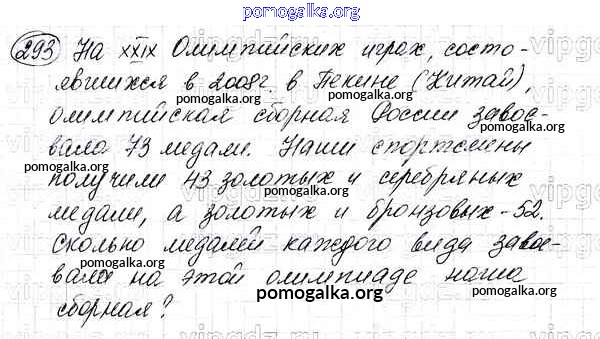 pomogalka.org
293 На XXIX Олимпийских играх, состо-
явшихся в 2008г. в Пекине (Китай),
pomogalka.org pomogalka.org
олимпийская сборная России завое-
pomogalka.org
вала 73 медали. Наши спортсмены
pomogalka.org pomogalka.org
получили 43 золотых и серебряных
pomogalka.org
медали, а золотых и бронзовых - 52.
pomogalka.org
Сколько медалей каждого вида завое-
pomogalka.org
вала на этой олимпиаде наша
pomogalka.org
сборная?
pomogalka.org